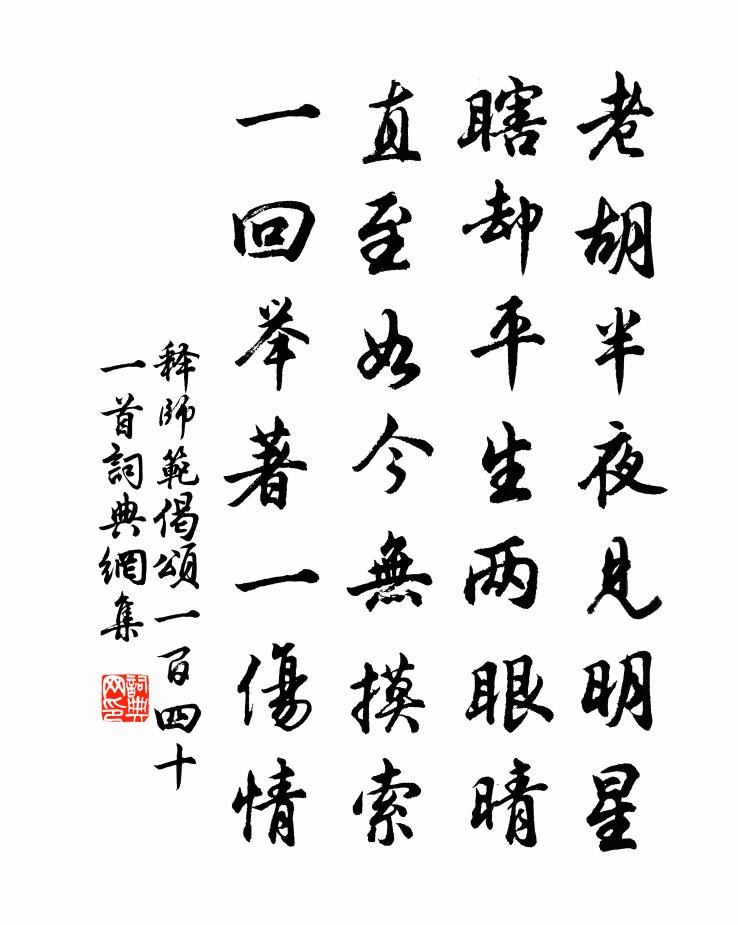 老胡半夜見明星
瞎却平生两眼晴
直至如今無摸索
一回举著一傷情
释師範偈頌一百四十
一首詞典網集
詞典网印